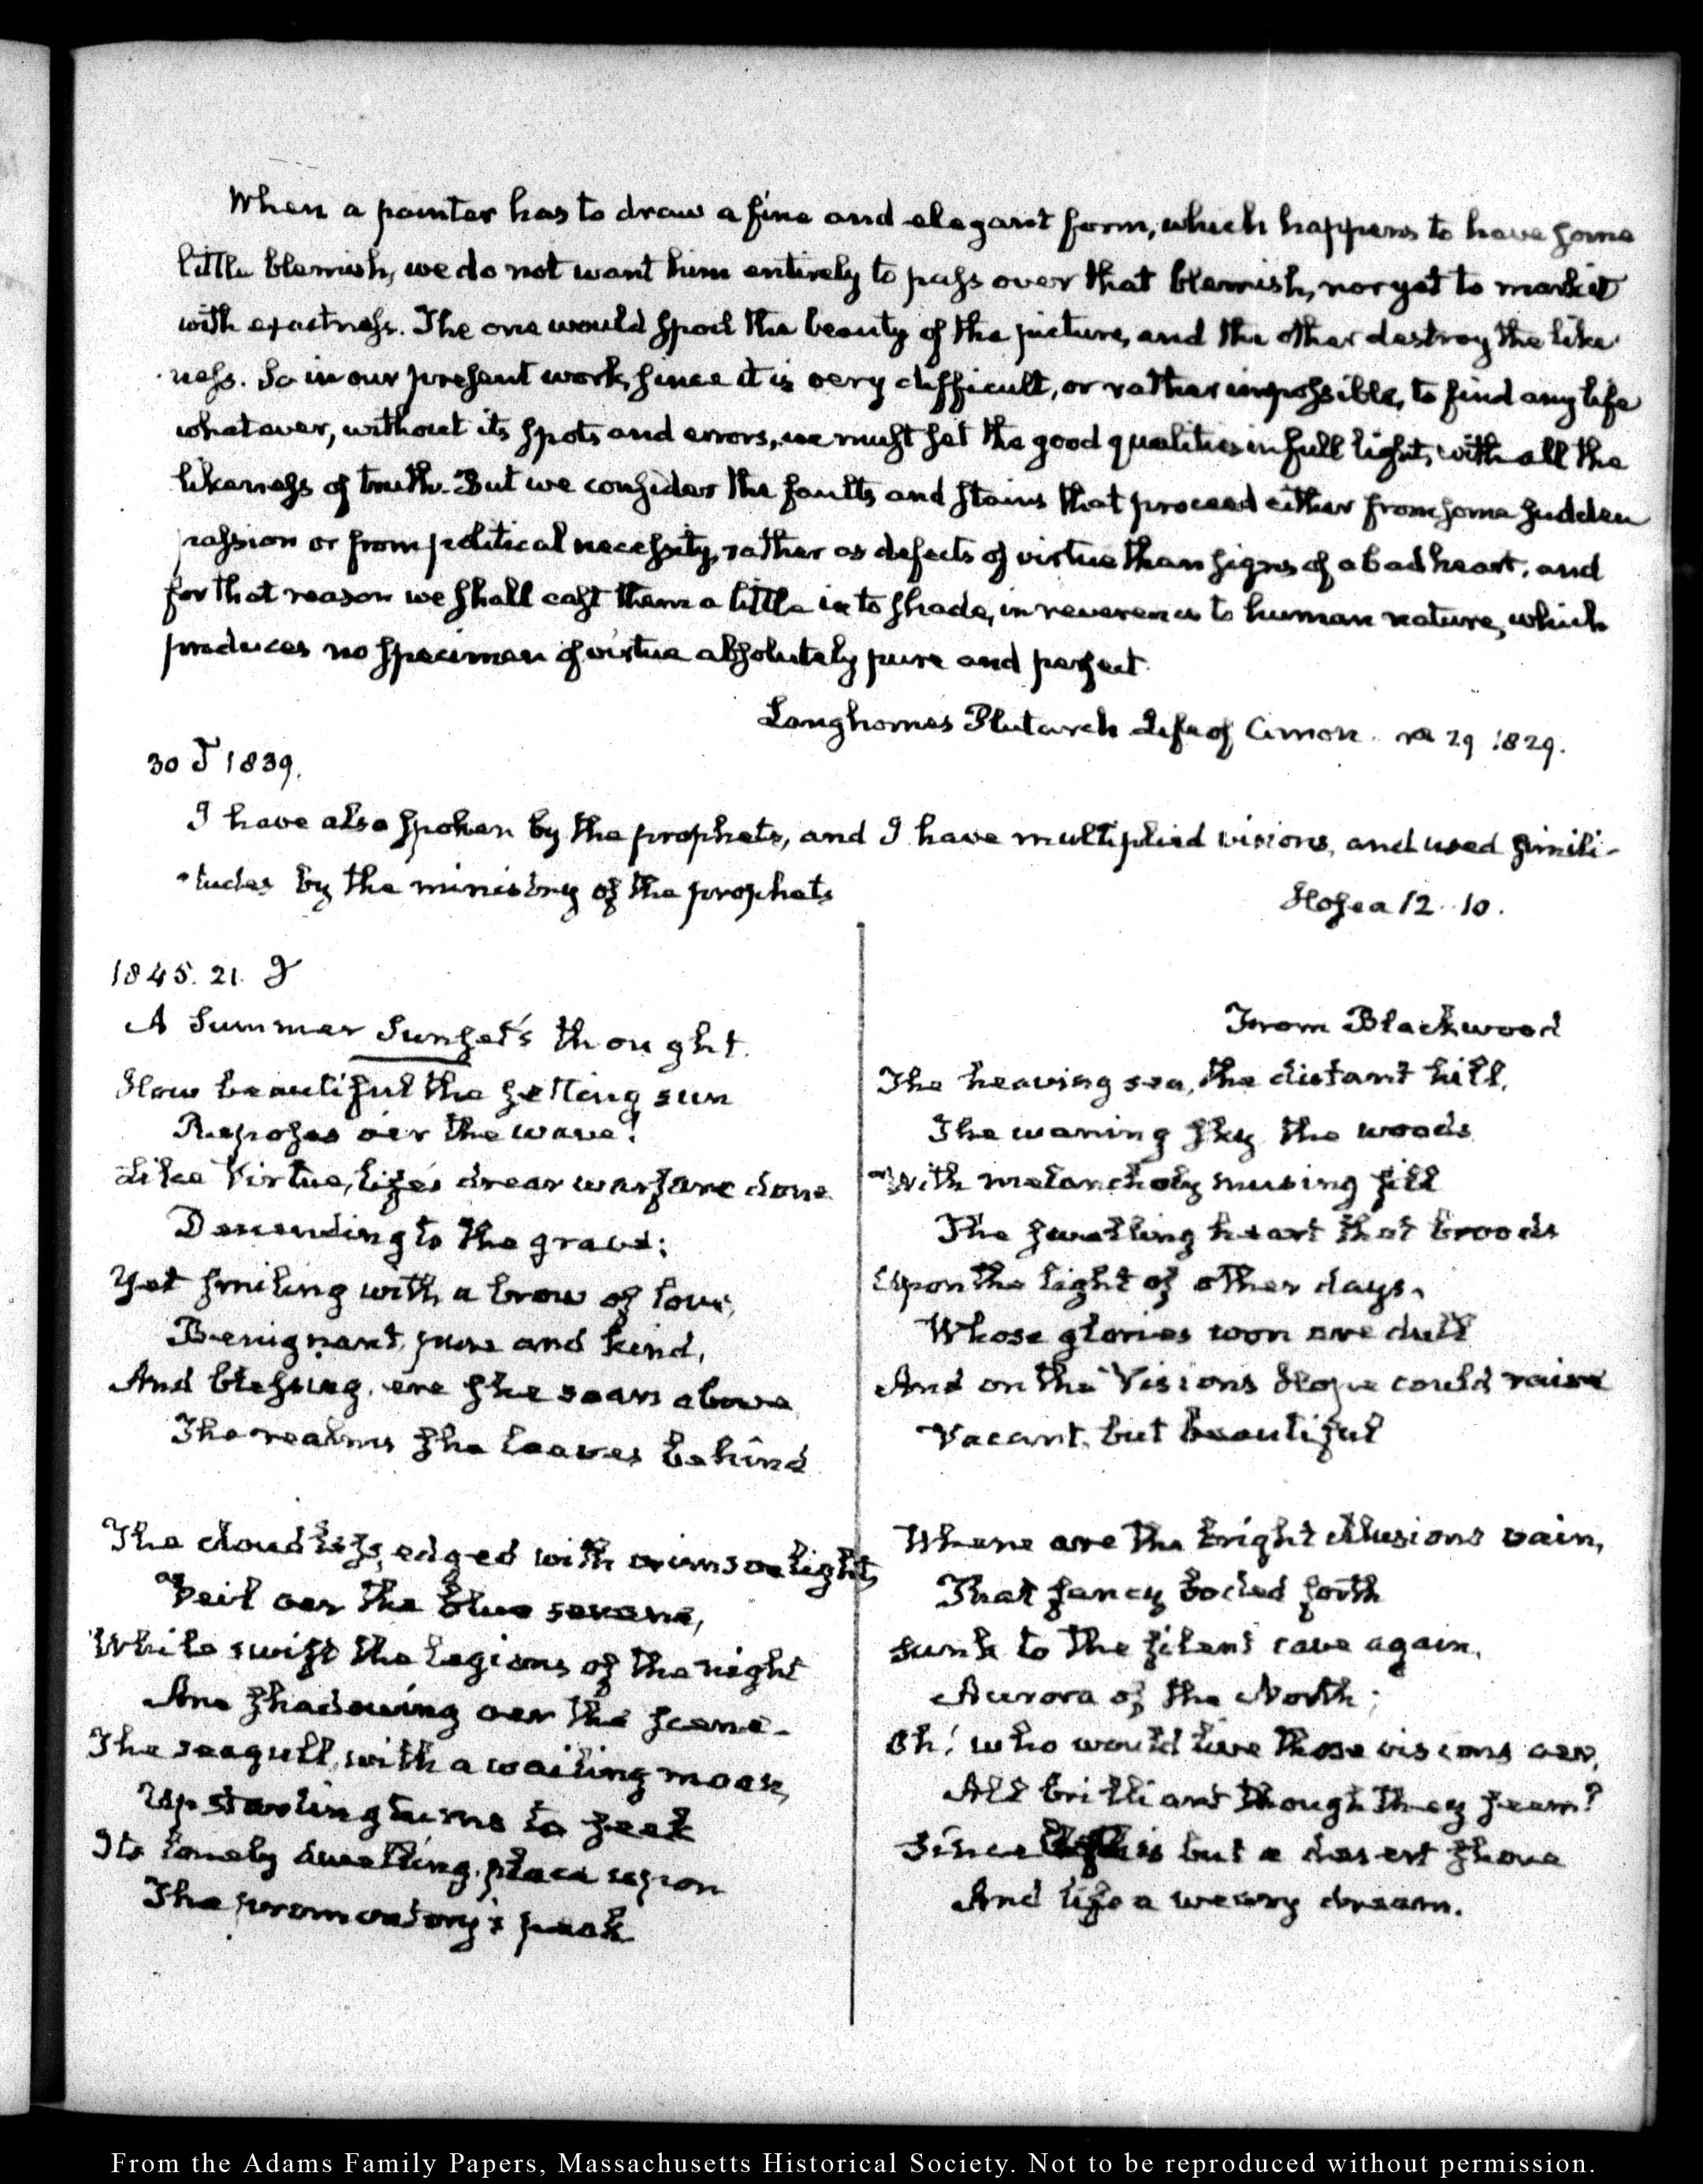 When a painter has to draw a fine and elegant form, which happens to have some
little blemish, we do not want him entirely to pass over that blemish, nor yet to mark it
with exactness. The one would spoil the beauty of the picture, and the other destroy the like
ness. So in our present work, since it is very difficult, or rather impossible, to find any life
whatever, without its spots and errors, we must set the good qualities in full light, with all the
likeness of truth. But we consider the faults and stains that proceed either from some sudden
passion or from political necessity, rather as defects of virtue than signs of a bad heart, and
for that reason we shall cast them a little into shade, in reverence to human nature, which
produces no specimen of virtue absolutely pure and perfect.
Langhornes Plutarch Life of Cimon. 29 1829.
30 J 1839.
I have also spoken by the prophets, and I have multiplied visions, and used simili-
tudes by the ministry of the prophets
Hosea 12. 10.
1845. 21. J
A Summer Sunset's thought.
How beautiful the setting sun
Reposes o'er the wave!
Like Virtue, life's drear warfare done
Descending to the grave;
Yet smiling with a brow of love,
Benignant, pure and kind,
And blessing, ere she soars above
The realms she leaves behind
The cloudlets, edged with crimson light,
Veil oer the blue serene,
While swift the legions of the night
Are shadowing oer the scene.
The seagull, with a wailing moan,
Up starting turns to seek
Its lonely dwelling place upon
The promontory's peak
From Blackwood
The heaving sea, the distant hill,
The waning sky, the woods
With melancholy musing fill
The swelling heart that broods
Upon the light of other days,
Whose glories soon are dull
And on the Visions Hope could raise
Vacant, but beautiful
Where are the bright illusions vain,
That fancy boded forth
Sunk to the silent cave again,
Aurora of the North;
Oh! who would live those visions oer,
All brilliant though they seem?
Since is but a desert shore
And life a weary dream.
From the Adams Family Papers, Massachusetts Historical Society. Not to be reproduced without permission.